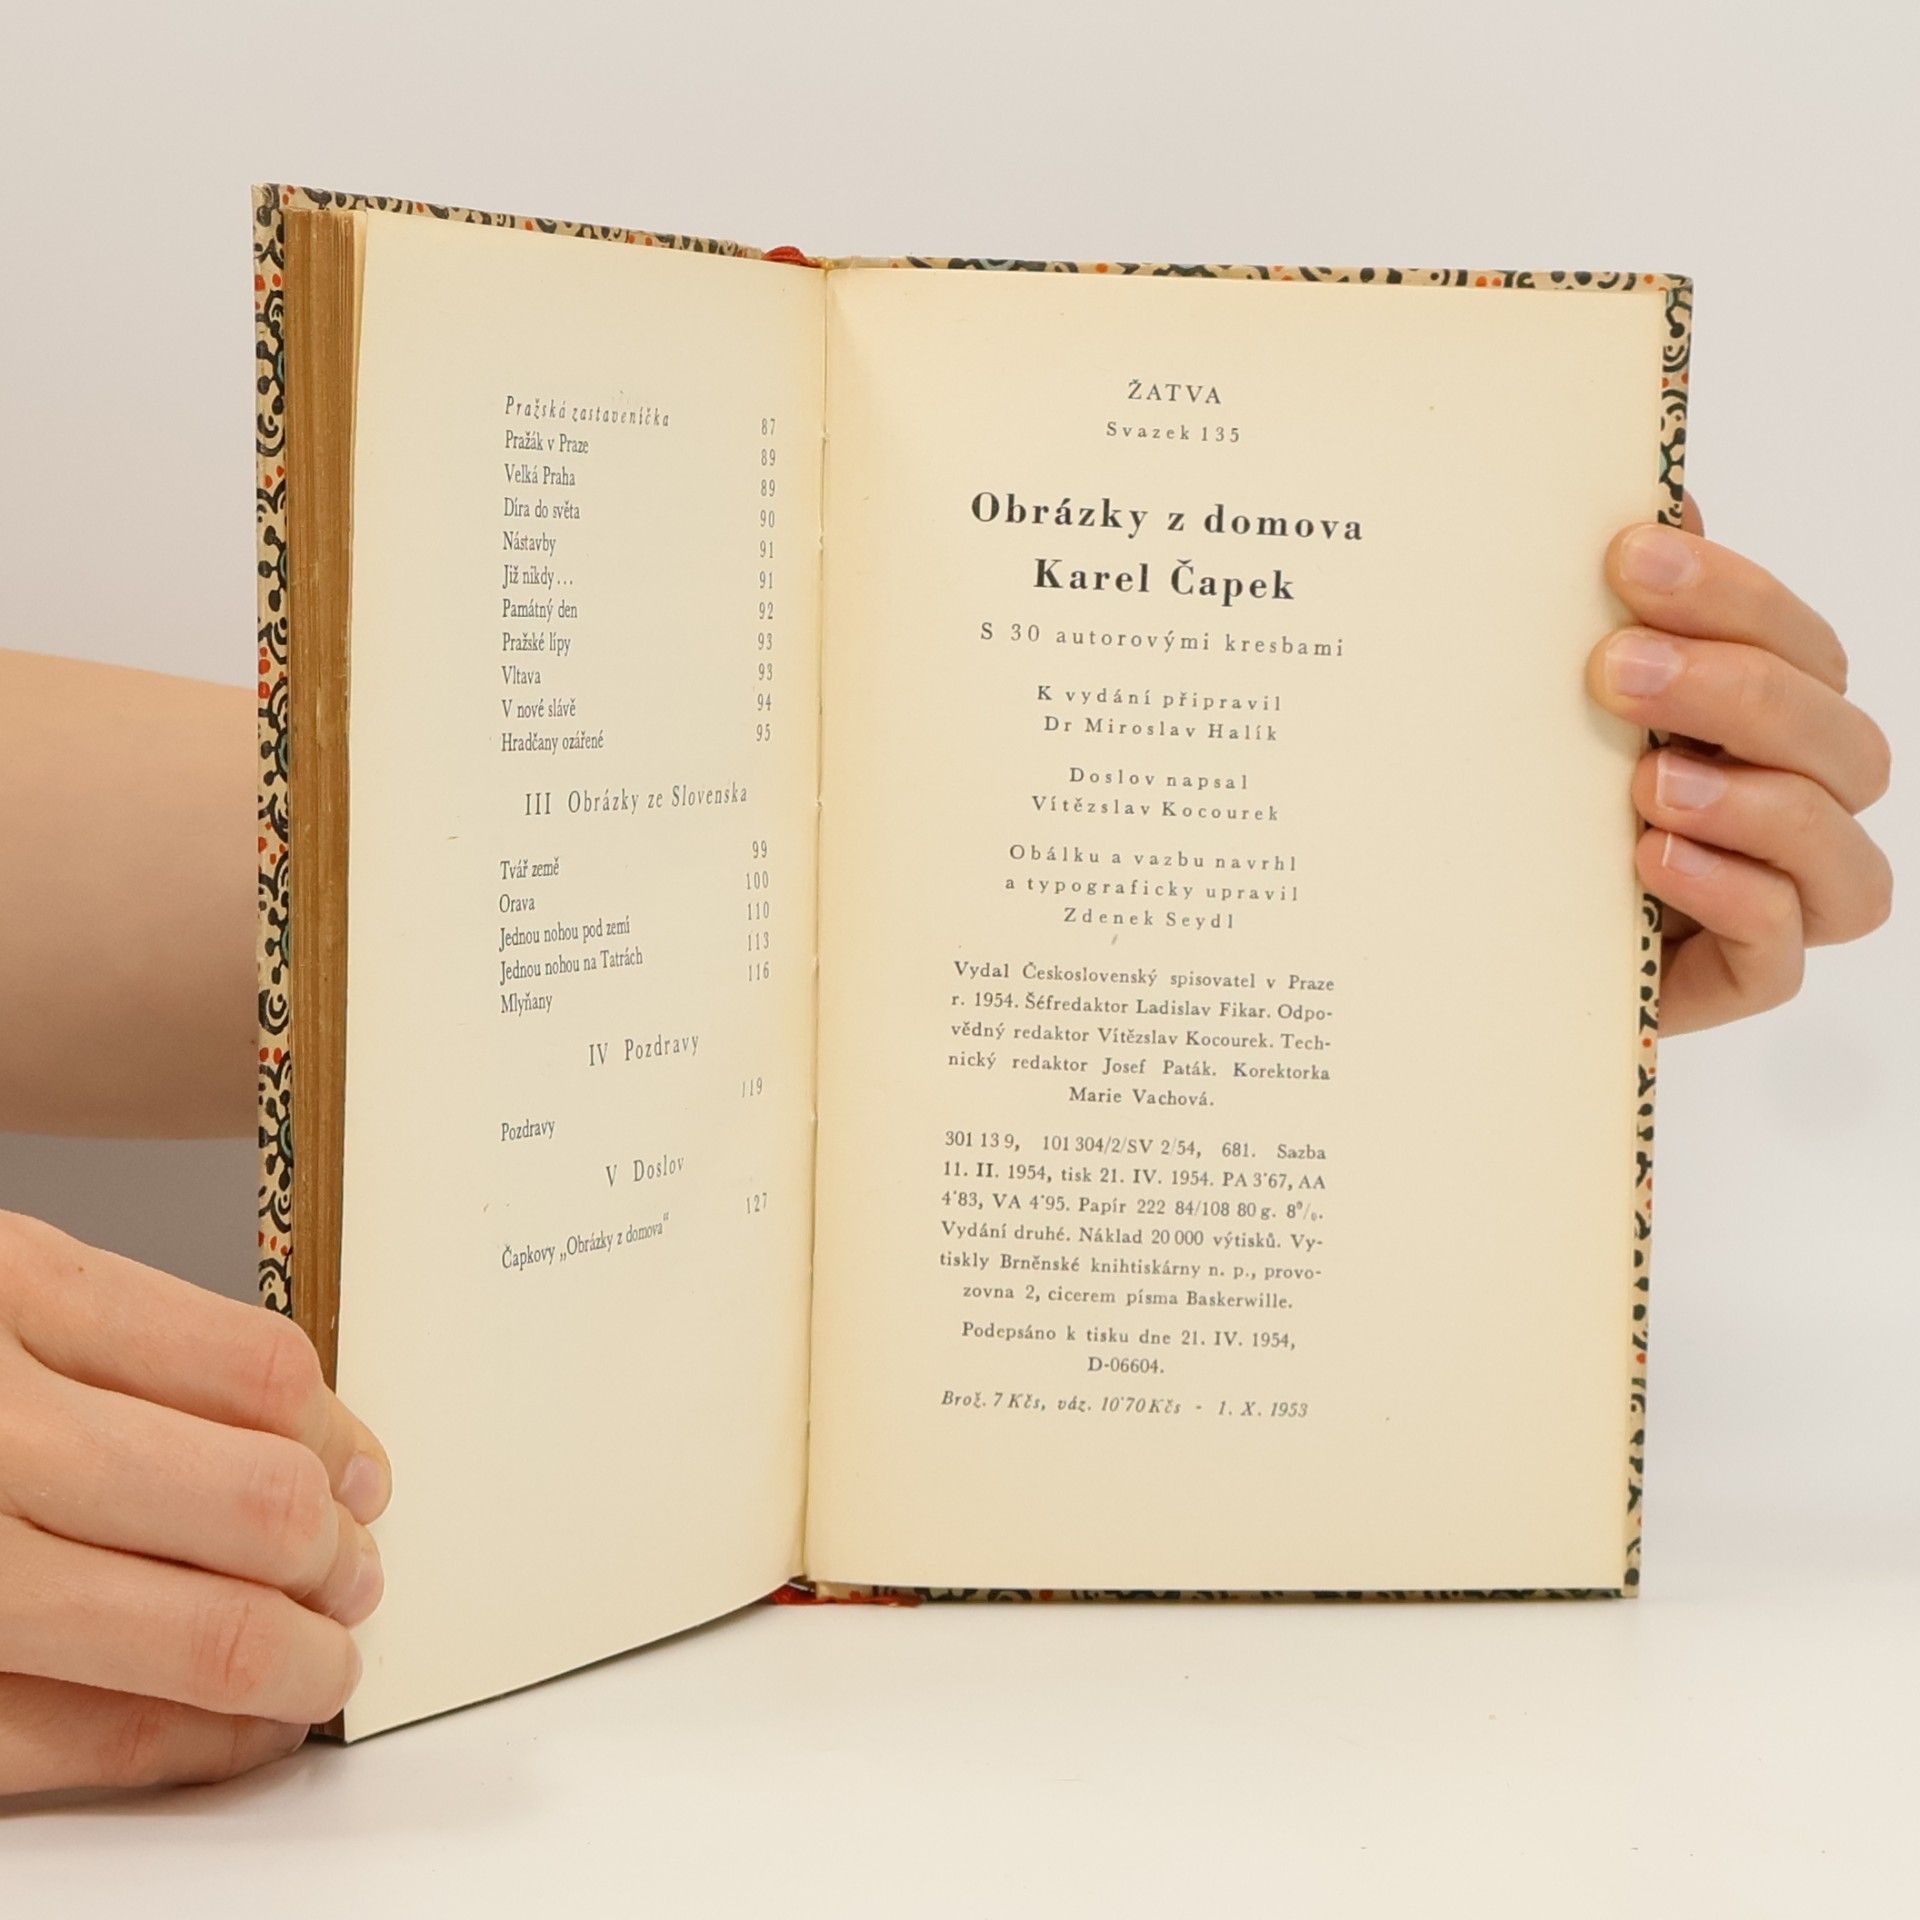 Pražská zastaveníčka 87
Pražák v Praze 89
Velká Praha 89
Díra do světa 90
Nástavby 91
Již nikdy... 91
Památný den 92
Pražské lípy 93
Vltava 93
V nové slávě 94
Hradčany ozářené 95
III Obrázky ze Slovenska
Tvář země 99
Orava 100
Jednou nohou pod zemí 110
Jednou nohou na Tatrách 113
Mlyňany 116
IV Pozdravy
Pozdravy 119
V Doslov
Čapkovy „Obrázky z domova“ 127
ŽATVA
Svazek 135
Obrázky z domova
Karel Čapek
S 30 autorovými kresbami
K vydání připravil
Dr Miroslav Halík
Doslov napsal
Vítězslav Kocourek
Obálku a vazbu navrhl
a typograficky upravil
Zdenek Seydl
Vydal Československý spisovatel v Praze
r. 1954. Šéfredaktor Ladislav Fikar. Odpo-
vědný redaktor Vítězslav Kocourek. Tech-
nický redaktor Josef Paták. Korektorka
Marie Vachová.
301 13 9, 101 304/2/SV 2/54, 681. Sazba
11. II. 1954, tisk 21. IV. 1954. PA 3˙67, AA
4˙83, VA 4˙95. Papír 222 84/108 80 g. 8⁰/₀.
Vydání druhé. Náklad 20 000 výtisků. Vy-
tiskly Brněnské knihtiskárny n. p., provo-
zovna 2, cicerem písma Baskerwille.
Podepsáno k tisku dne 21. IV. 1954,
D-06604.
Brož. 7 Kčs, váz. 10˙70 Kčs - 1. X. 1953